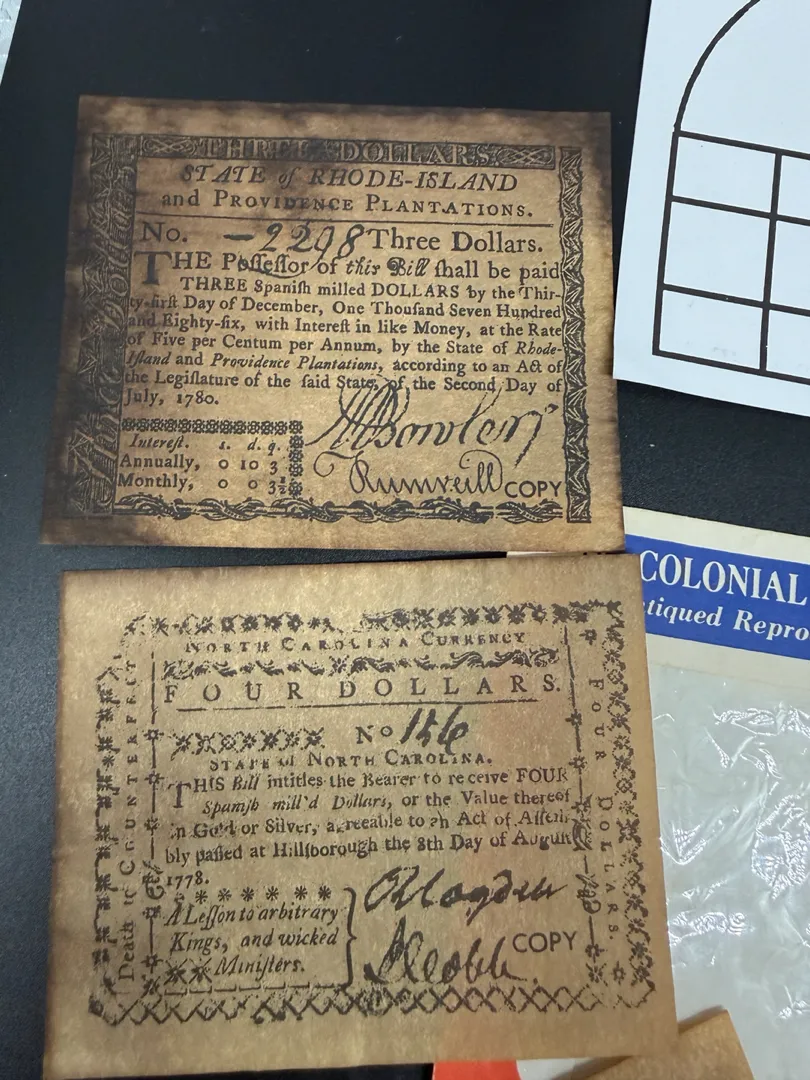 THREE DOLLARS.
STATE of RHODE-ISLAND
and PROVIDENCE PLANTATIONS.
No. -2298 Three Dollars.
THE Poſſeſſor of this Bill ſhall be paid
THREE Spaniſh milled DOLLARS by the Thir-
ty-firſt Day of December, One Thouſand Seven Hundred
and Eighty-ſix, with Intereſt in like Money, at the Rate
of Five per Centum per Annum, by the State of Rhode-
Iſland and Providence Plantations, according to an Act of
the Legiſlature of the ſaid State, of the Second Day of
July, 1780.
Intereſt. s. d. q.
Annually, 0 10 3
Monthly, 0 0 3½
COPY
NORTH CAROLINA CURRENCY
FOUR DOLLARS.
No 156
STATE of NORTH CAROLINA.
THIS Bill intitles the Bearer to receive FOUR
Spaniſh mill'd Dollars, or the Value thereof
in Gold or Silver, agreeable to an Act of Aſſem-
bly paſſed at Hillſborough the 8th Day of Auguſt
1778.
A Leſſon to arbitrary
Kings, and wicked
Miniſters.
COPY
Death to COUNTERFEIT
FOUR DOLLARS.
COLONIAL
tiqued Repro